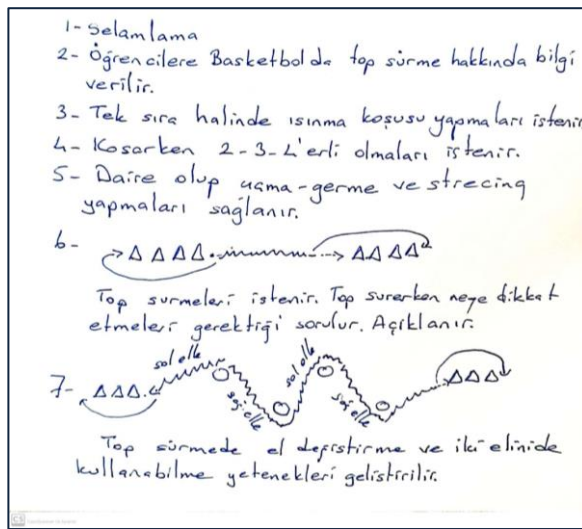 1- Selamlama
2- Öğrencilere Basketbolda top sürme hakkında bilgi
verilir.
3- Tek sıra halinde ısınma koşusu yapmaları istenir
4- Koşarken 2-3-4'erli olmaları istenir.
5- Daire olup açma-germe ve strecing
yapmaları sağlanır.
6-
Top sürmeleri istenir. Top sürerken neye dikkat
etmeleri gerektiği sorulur. Açıklanır.
sol elle sol elle
7-
sağ elle sağ elle
Top sürmede el değiştirme ve iki elinide
kullanabilme yetenekleri geliştirilir.
CS